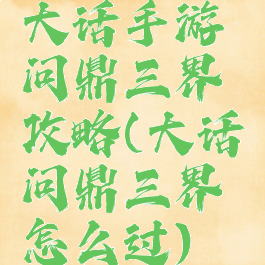 大话手游
问鼎三界
攻略(大话
问鼎三界
怎么过)